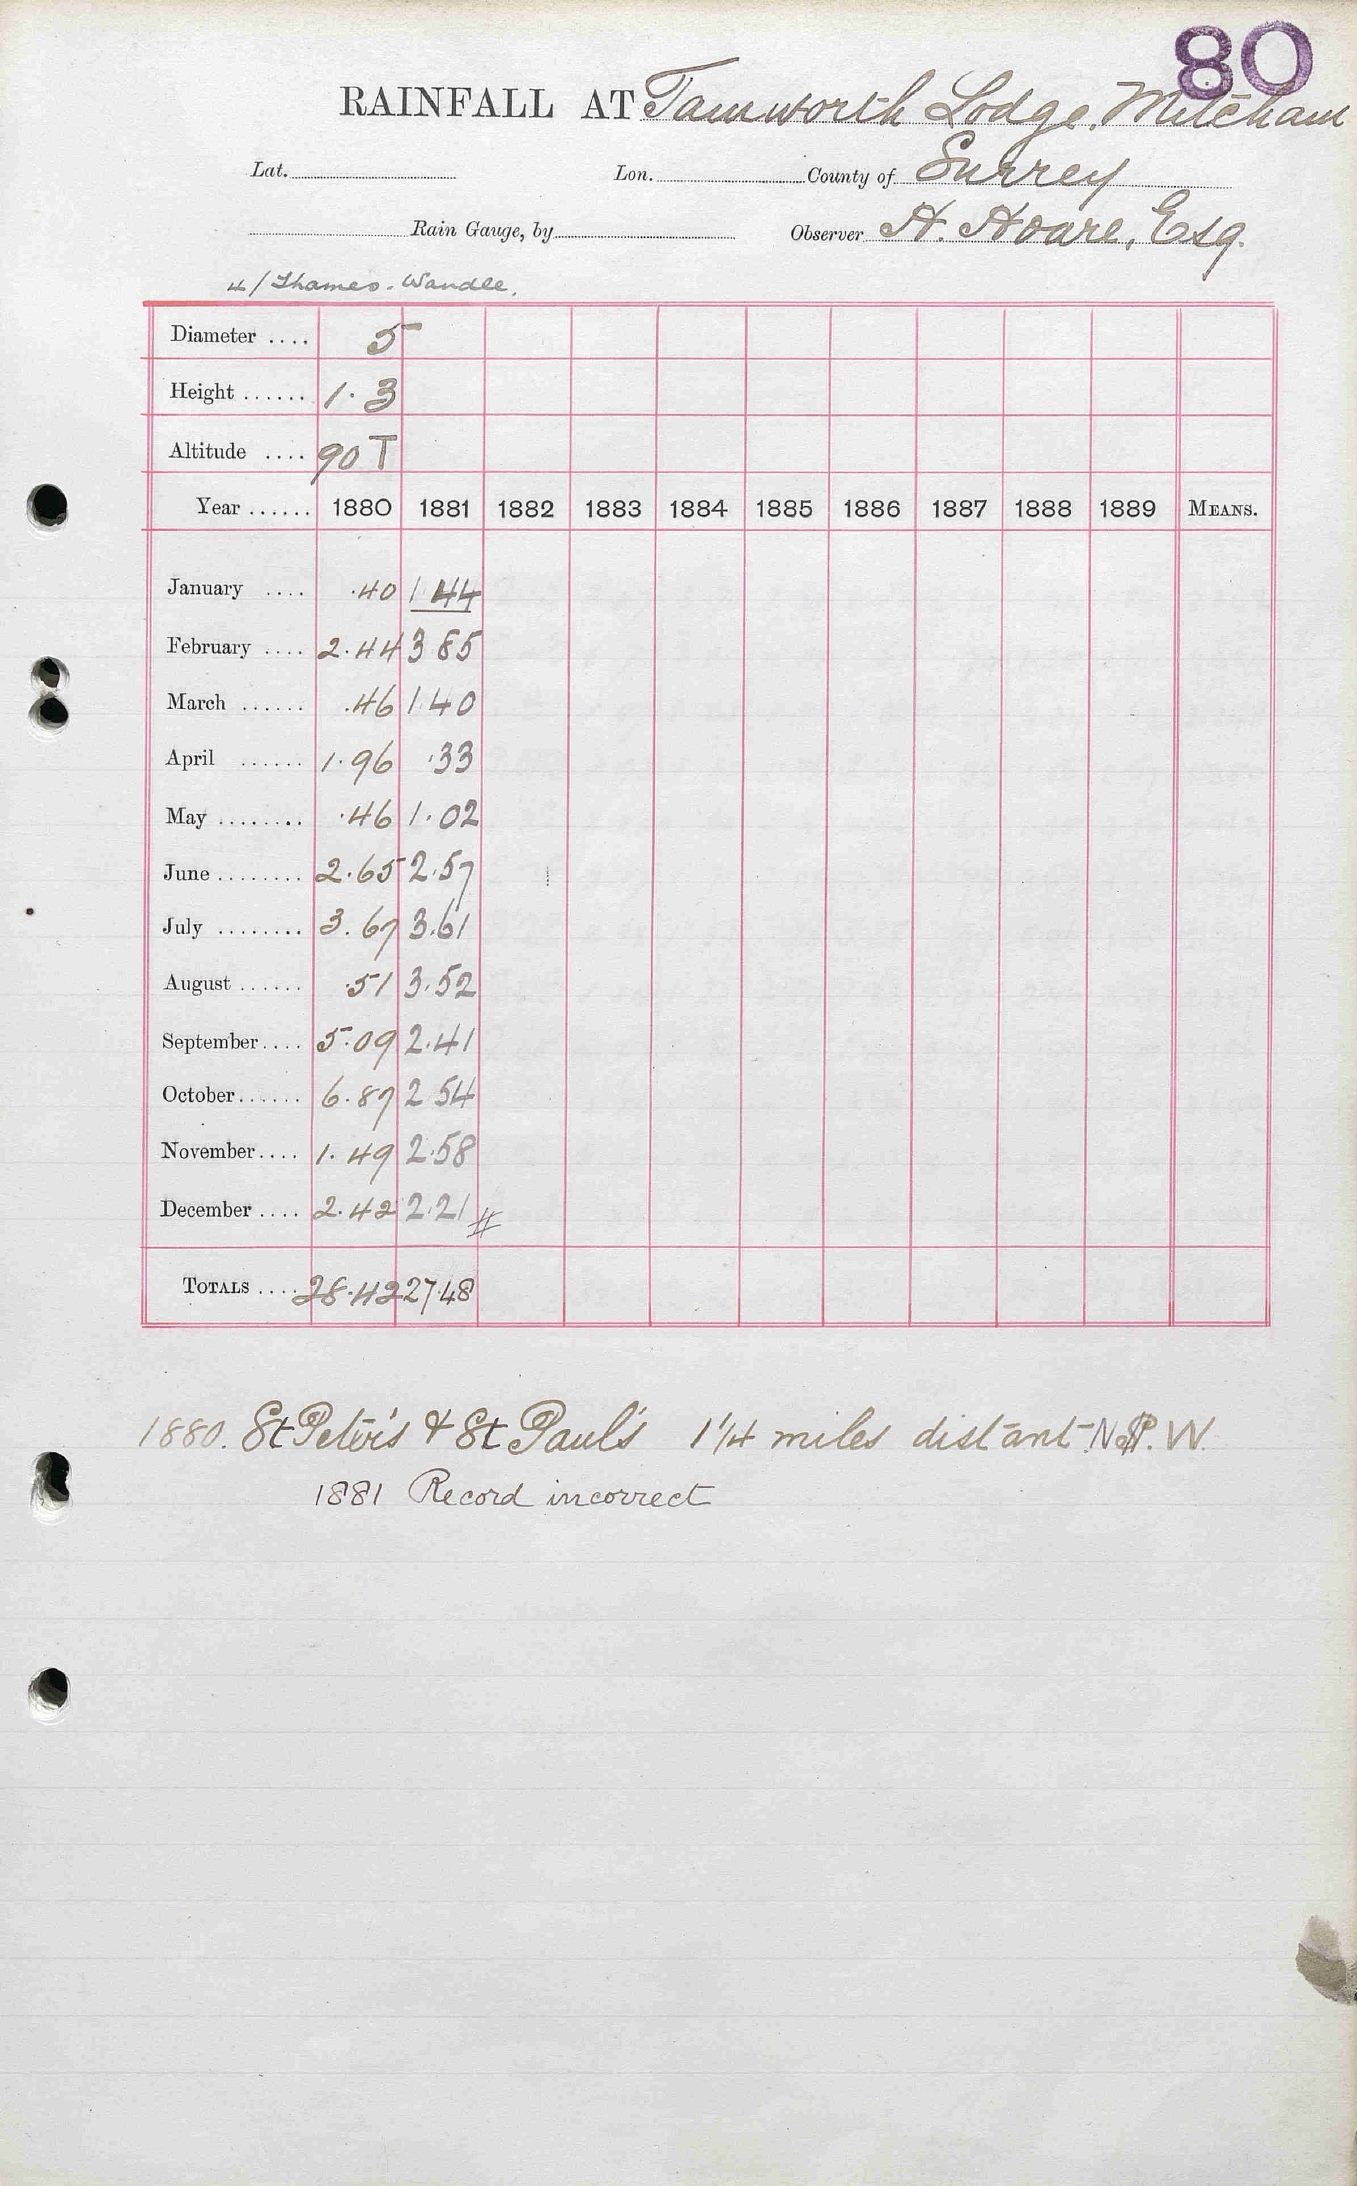 80
RAINFALL AT Tamworth Lodge, Mitcham
Lat. Lon. County of Surrey
Rain Gauge, by Observer H. Hoare, Esq.
4/Thames. Wandle.
Diameter .... 5
Height ...... 1.3
Altitude .... 90 T
Year ...... 1880 1881 1882 1883 1884 1885 1886 1887 1888 1889 MEANS.
January .... .40 1 44
February .... 2.44 3 85
March ...... .46 1.40
April ...... 1.96 .33
May ........ .46 1.02
June ........ 2.65 2.57
July ........ 3.67 3.61
August ...... .51 3.52
September .... 5.09 2.41
October ...... 6.87 2 54
November .... 1.49 2.58
December .... 2.42 2.21 #
TOTALS .... 28.42 27.48
1880. St Peter's & St Paul's 1 1/4 miles distant W.
1881 Record incorrect